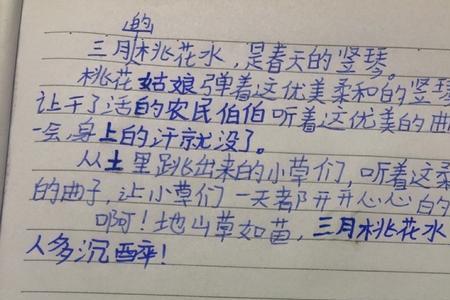 的
三月桃花水,是春天的竖琴。
桃花姑娘弹着这优美柔和的竖琴
让干了活的农民伯伯听着这优美的曲
一会,身上的汗就没了。
从土里跳出来的小草们,听着这柔
的曲子,让小草们一天都开开心心的
啊!地山草如苗,三月桃花水
人多沉醉!